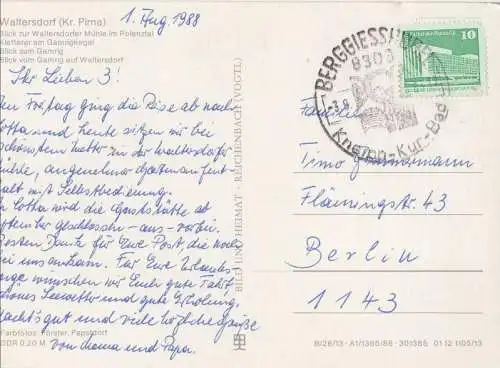 Waltersdorf (Kr. Pirna)
Blick zur Waltersdorfer Mühle im Polenztal
Kletterer am Gamrigkegel
Blick zum Gamrig
Blick vom Gamrig auf Waltersdorf
1. Aug. 1988
Ihr Lieben 3!
Am Freitag ging die Reise ab nach
Cotta und heute sitzen wir bei
schönstem Wetter in der Waltersdorfer
Mühle, angenehmer Gartenaufent
halt mit Selbstbedienung.
In Cotta wird die Gaststätte ab
Oktober geschlossen - aus - vorbei.
Besten Dank für Ewe Post, die noch
bei uns ankam. Für Ewe Urlaubs-
tage wünschen wir Euch gute Fahrt
schönes Seewetter und gute Erholung.
Macht's gut und viele herzliche Grüße
von Mama und Papa.
Farbfotos: Förster, Papstdorf
DDR 0,20 M
BILD UND HEIMAT · REICHENBACH (VOGTL)
BERGGIESSHÜBEL
8303
Kneipp-Kur-Bad
10
Familie
Timo Zimmermann
Flämingstr. 43
Berlin
1143
B/26/13 · A1/1365/88 · 301385 01 12 1105/13